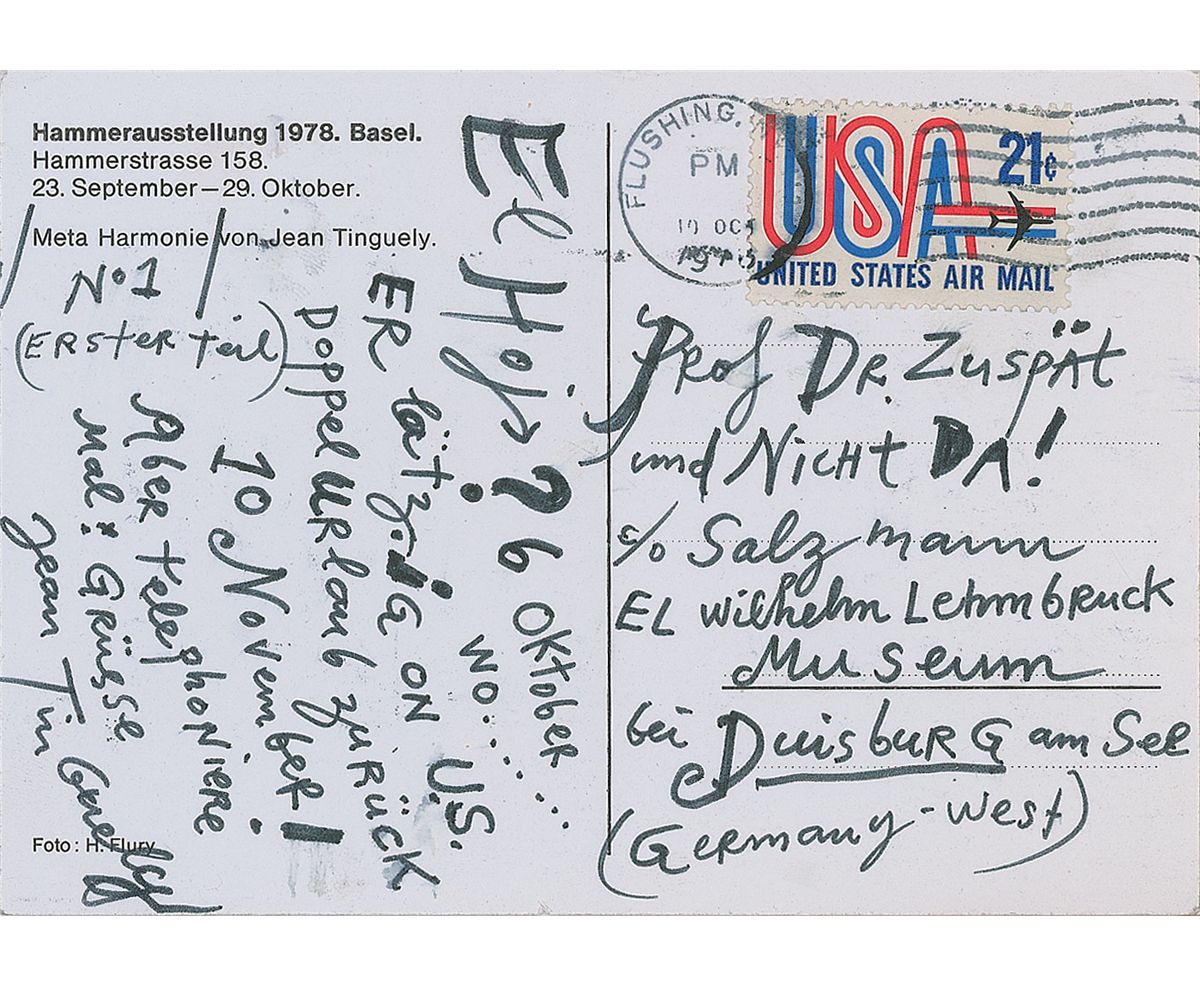 Hammerausstellung 1978. Basel.
Hammerstrasse 158.
23. September – 29. Oktober.
Meta Harmonie von Jean Tinguely.
No 1
(ERSTER teil)
El Hoj→?
6 Oktober
wo......
ER
ON U.S.
DoppelURlaub ZURÜCK
10 November!
Aber telephoNiere
Mal: GRüsse
Jean Tinguely
Foto: H. Flury
FLUSHING,
PM
10 OC
197
USA 21¢
UNITED STATES AIR MAIL
Prof DR. Zuspät
und NicHt DA!
c/o Salzmann
EL Wilhelm Lehmbruck
Museum
bei DuisbuRG am See
(GeRmany-west)